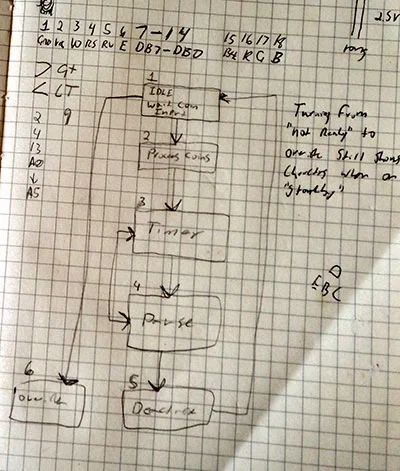 1 2 3 4 5 6 7-14 15 16 17 18
RS E DB7-DB0 R G B
2.5V
> GT
< LT
9
2
4
13
A0
↓
A5
1
IDLE
Wait Coin
2
Process Coins
3
Timer
4
Pause
5
6
override
Turning From
"not Ready" to
override Still Shows
when on
"Standby"
D
E B C